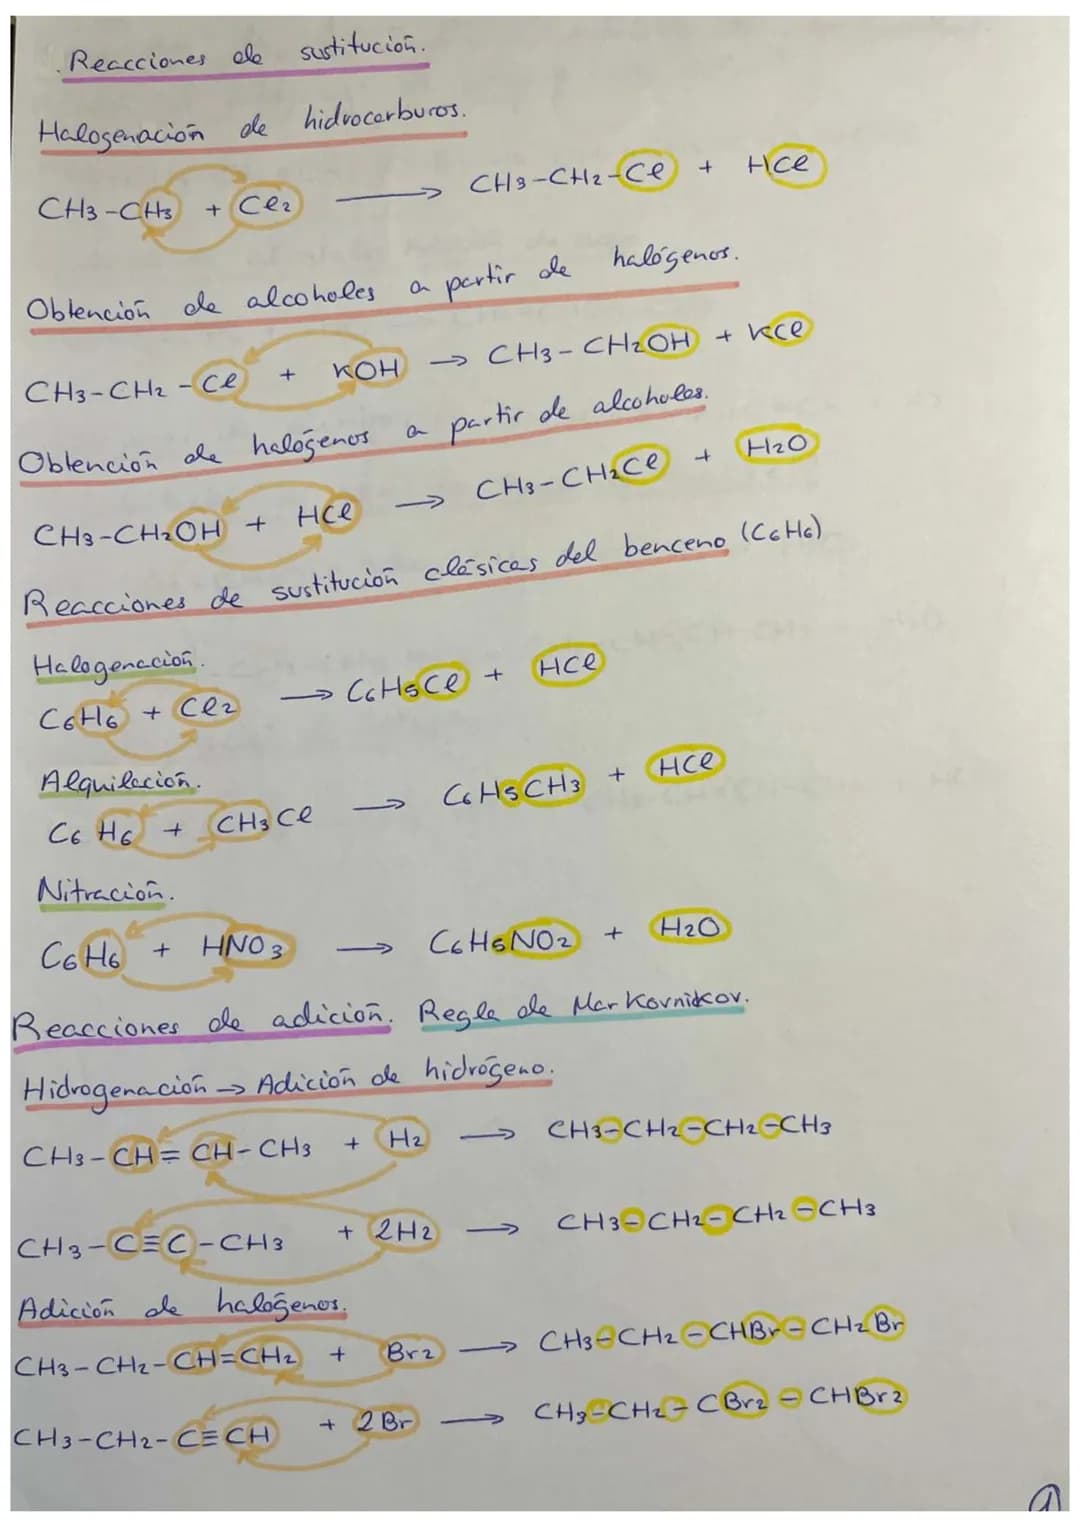 Reacciones de sustitución.
Halogenación de hidrocarburos.
CH3-CH3 + Cl2 → CH3-CH2-Cl + HCl
Obtención de alcoholes a partir de halógenos.
CH3-CH2-Cl + KOH → CH3-CH2OH + KCl
Obtención de halógenos a partir de alcoholes.
CH3-CH2OH + HCl → CH3-CH2Cl + H2O
Reacciones de sustitución clásicas del benceno (C6H6)
Halogenación.
C6H6 + Cl2 → C6H5Cl + HCl
Alquilación.
C6H6 + CH3Cl → C6H5CH3 + HCl
Nitración.
C6H6 + HNO3 → C6H5NO2 + H2O
Reacciones de adición. Regla de Markovnikov.
Hidrogenación → Adición de hidrógeno.
CH3-CH=CH-CH3 + H2 → CH3-CH2-CH2-CH3
CH3-C≡C-CH3 + 2H2 → CH3-CH2-CH2-CH3
Adición de halógenos.
CH3-CH2-CH=CH2 + Br2 → CH3-CH2-CHBr-CH2Br
CH3-CH2-C≡CH + 2Br → CH3-CH2-CBr2-CHBr2
1